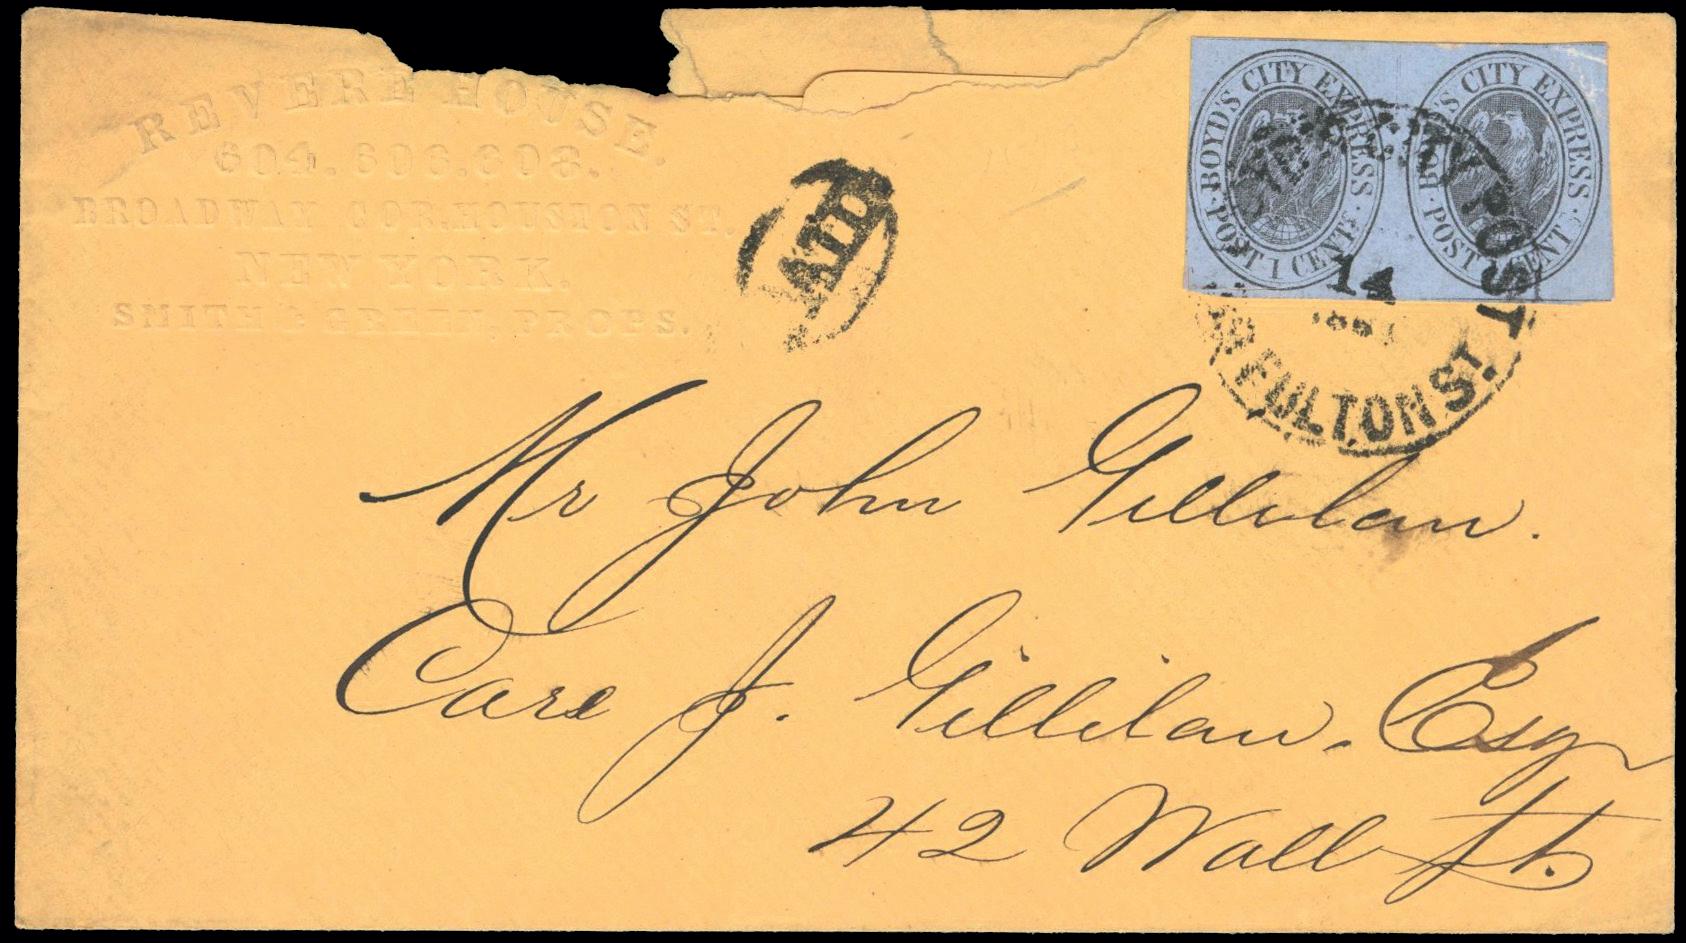 REVERE HOUSE.
604. 606. 608.
BROADWAY COR. HOUSTON ST.
NEW YORK.
SMITH & GREEN, PROPS.
PAID
· BOYD'S CITY EXPRESS · POST 1 CENT
BOYD'S CITY EXPRESS · POST 1 CENT
CITY POST
14
FULTON ST.
Mr John Gillilan.
Care J. Gillilan, Esq
42 Wall St.